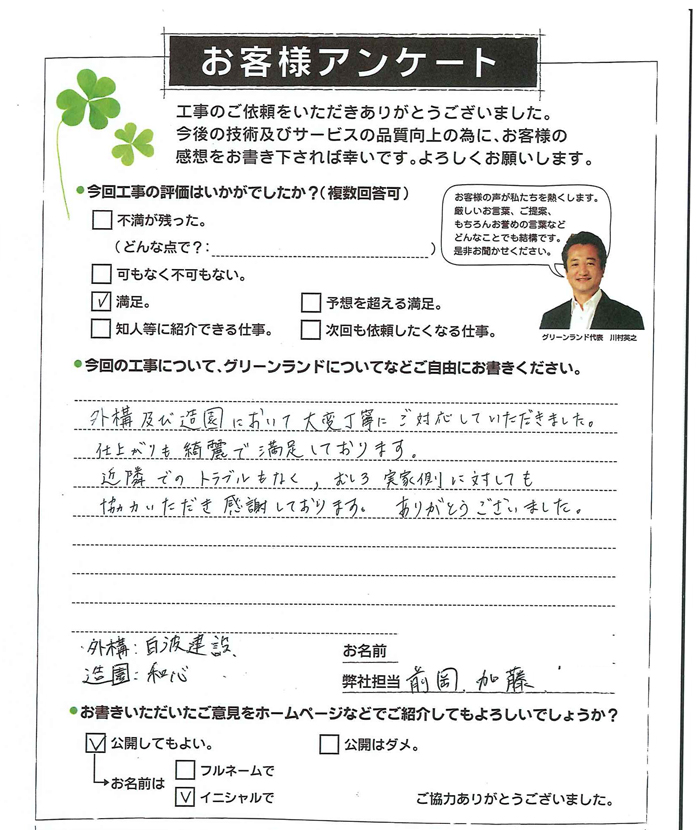 お客様アンケート
工事のご依頼をいただきありがとうございました。
今後の技術及びサービスの品質向上の為に、お客様の
感想をお書き下されば幸いです。よろしくお願いします。
●今回工事の評価はいかがでしたか?(複数回答可)
不満が残った。
(どんな点で?: )
可もなく不可もない。
満足。
予想を超える満足。
知人等に紹介できる仕事。
次回も依頼したくなる仕事。
お客様の声が私たちを熱くします。
厳しいお言葉、ご提案、
もちろんお誉めの言葉など
どんなことでも結構です。
是非お聞かせください。
グリーンランド代表 川村英之
●今回の工事について、グリーンランドについてなどご自由にお書きください。
外構及び造園において大変丁寧にご対応していただきました。
仕上がりも綺麗で満足しております。
近隣でのトラブルもなく,むしろ実家側に対しても
協力いただき感謝しております。 ありがとうございました。
・外構:白波建設
造園:和心
お名前
弊社担当 前岡、加藤
●お書きいただいたご意見をホームページなどでご紹介してもよろしいでしょうか?
公開してもよい。
公開はダメ。
お名前は
フルネームで
イニシャルで
ご協力ありがとうございました。